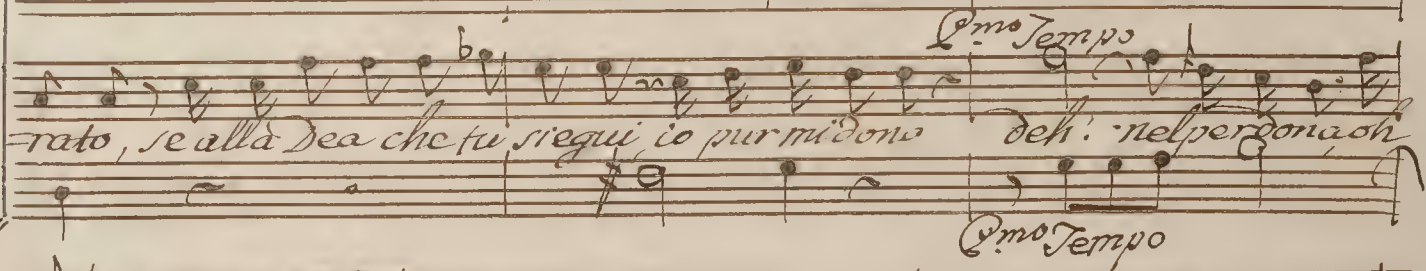 Pmo Tempo
=rato, se alla Dea che tu siegui, io pur mi dono deh! nel perdona, oh
Pmo Tempo